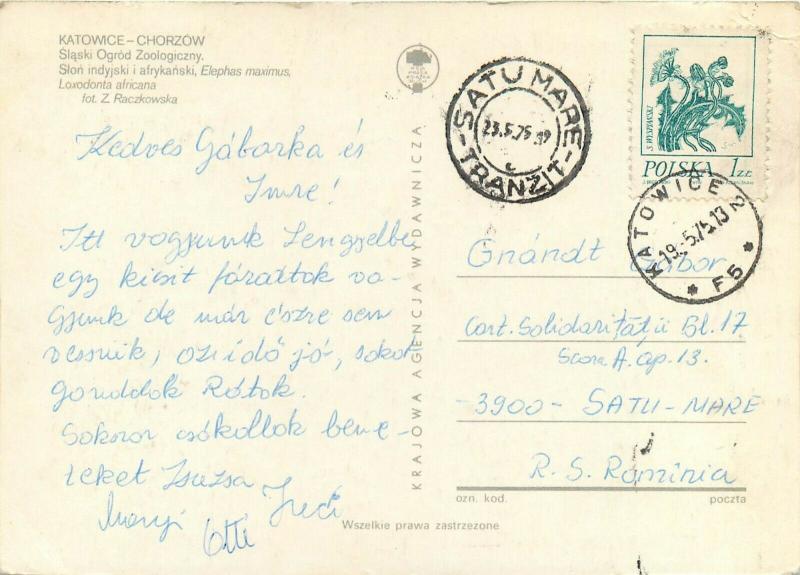 KATOWICE – CHORZÓW
Śląski Ogród Zoologiczny.
Słoń indyjski i afrykański, Elephas maximus,
Loxodonta africana
fot. Z. Raczkowska
Kedves Gáborka és
Imre!
Itt vagyunk Lengyelbe
egy kicsit fáradtok va-
gyunk de már észre sem
vesszük, az idő jó, sokat
gonddok Rátok.
Sokszor csókollok bene-
teket Zsuzsa
Irecí
Otti
KRAJOWA AGENCJA WYDAWNICZA
SATU MARE
23.5.75
TRANZIT
S. WYSPIAŃSKI
POLSKA 1 ZŁ
KATOWICE 2
19.-5.75.13
F5
Gnándt Gábor
Cart. Solidarității Bl. 17
Scara A. ap. 13.
-3900- SATU-MARE
R. S. Rominia
ozn. kod. poczta
Wszelkie prawa zastrzeżone